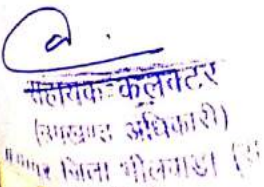 सहायक कलेक्टर
(उपखण्ड अधिकारी)
जिला भीलवाड़ा